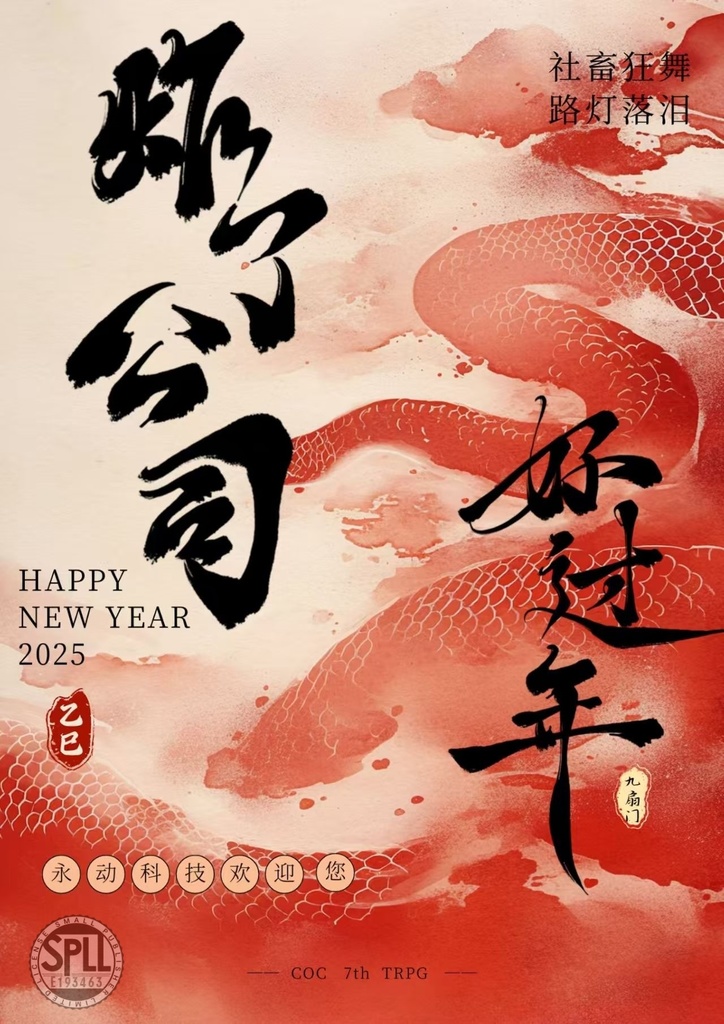 炸了公司
好过年
社畜狂舞
路灯落泪
HAPPY
NEW YEAR
2025
乙巳
九扇门
永动科技欢迎您
SMALL PUBLISHER LIMITED LICENSE
SPLL
E193463
—— COC 7th TRPG ——